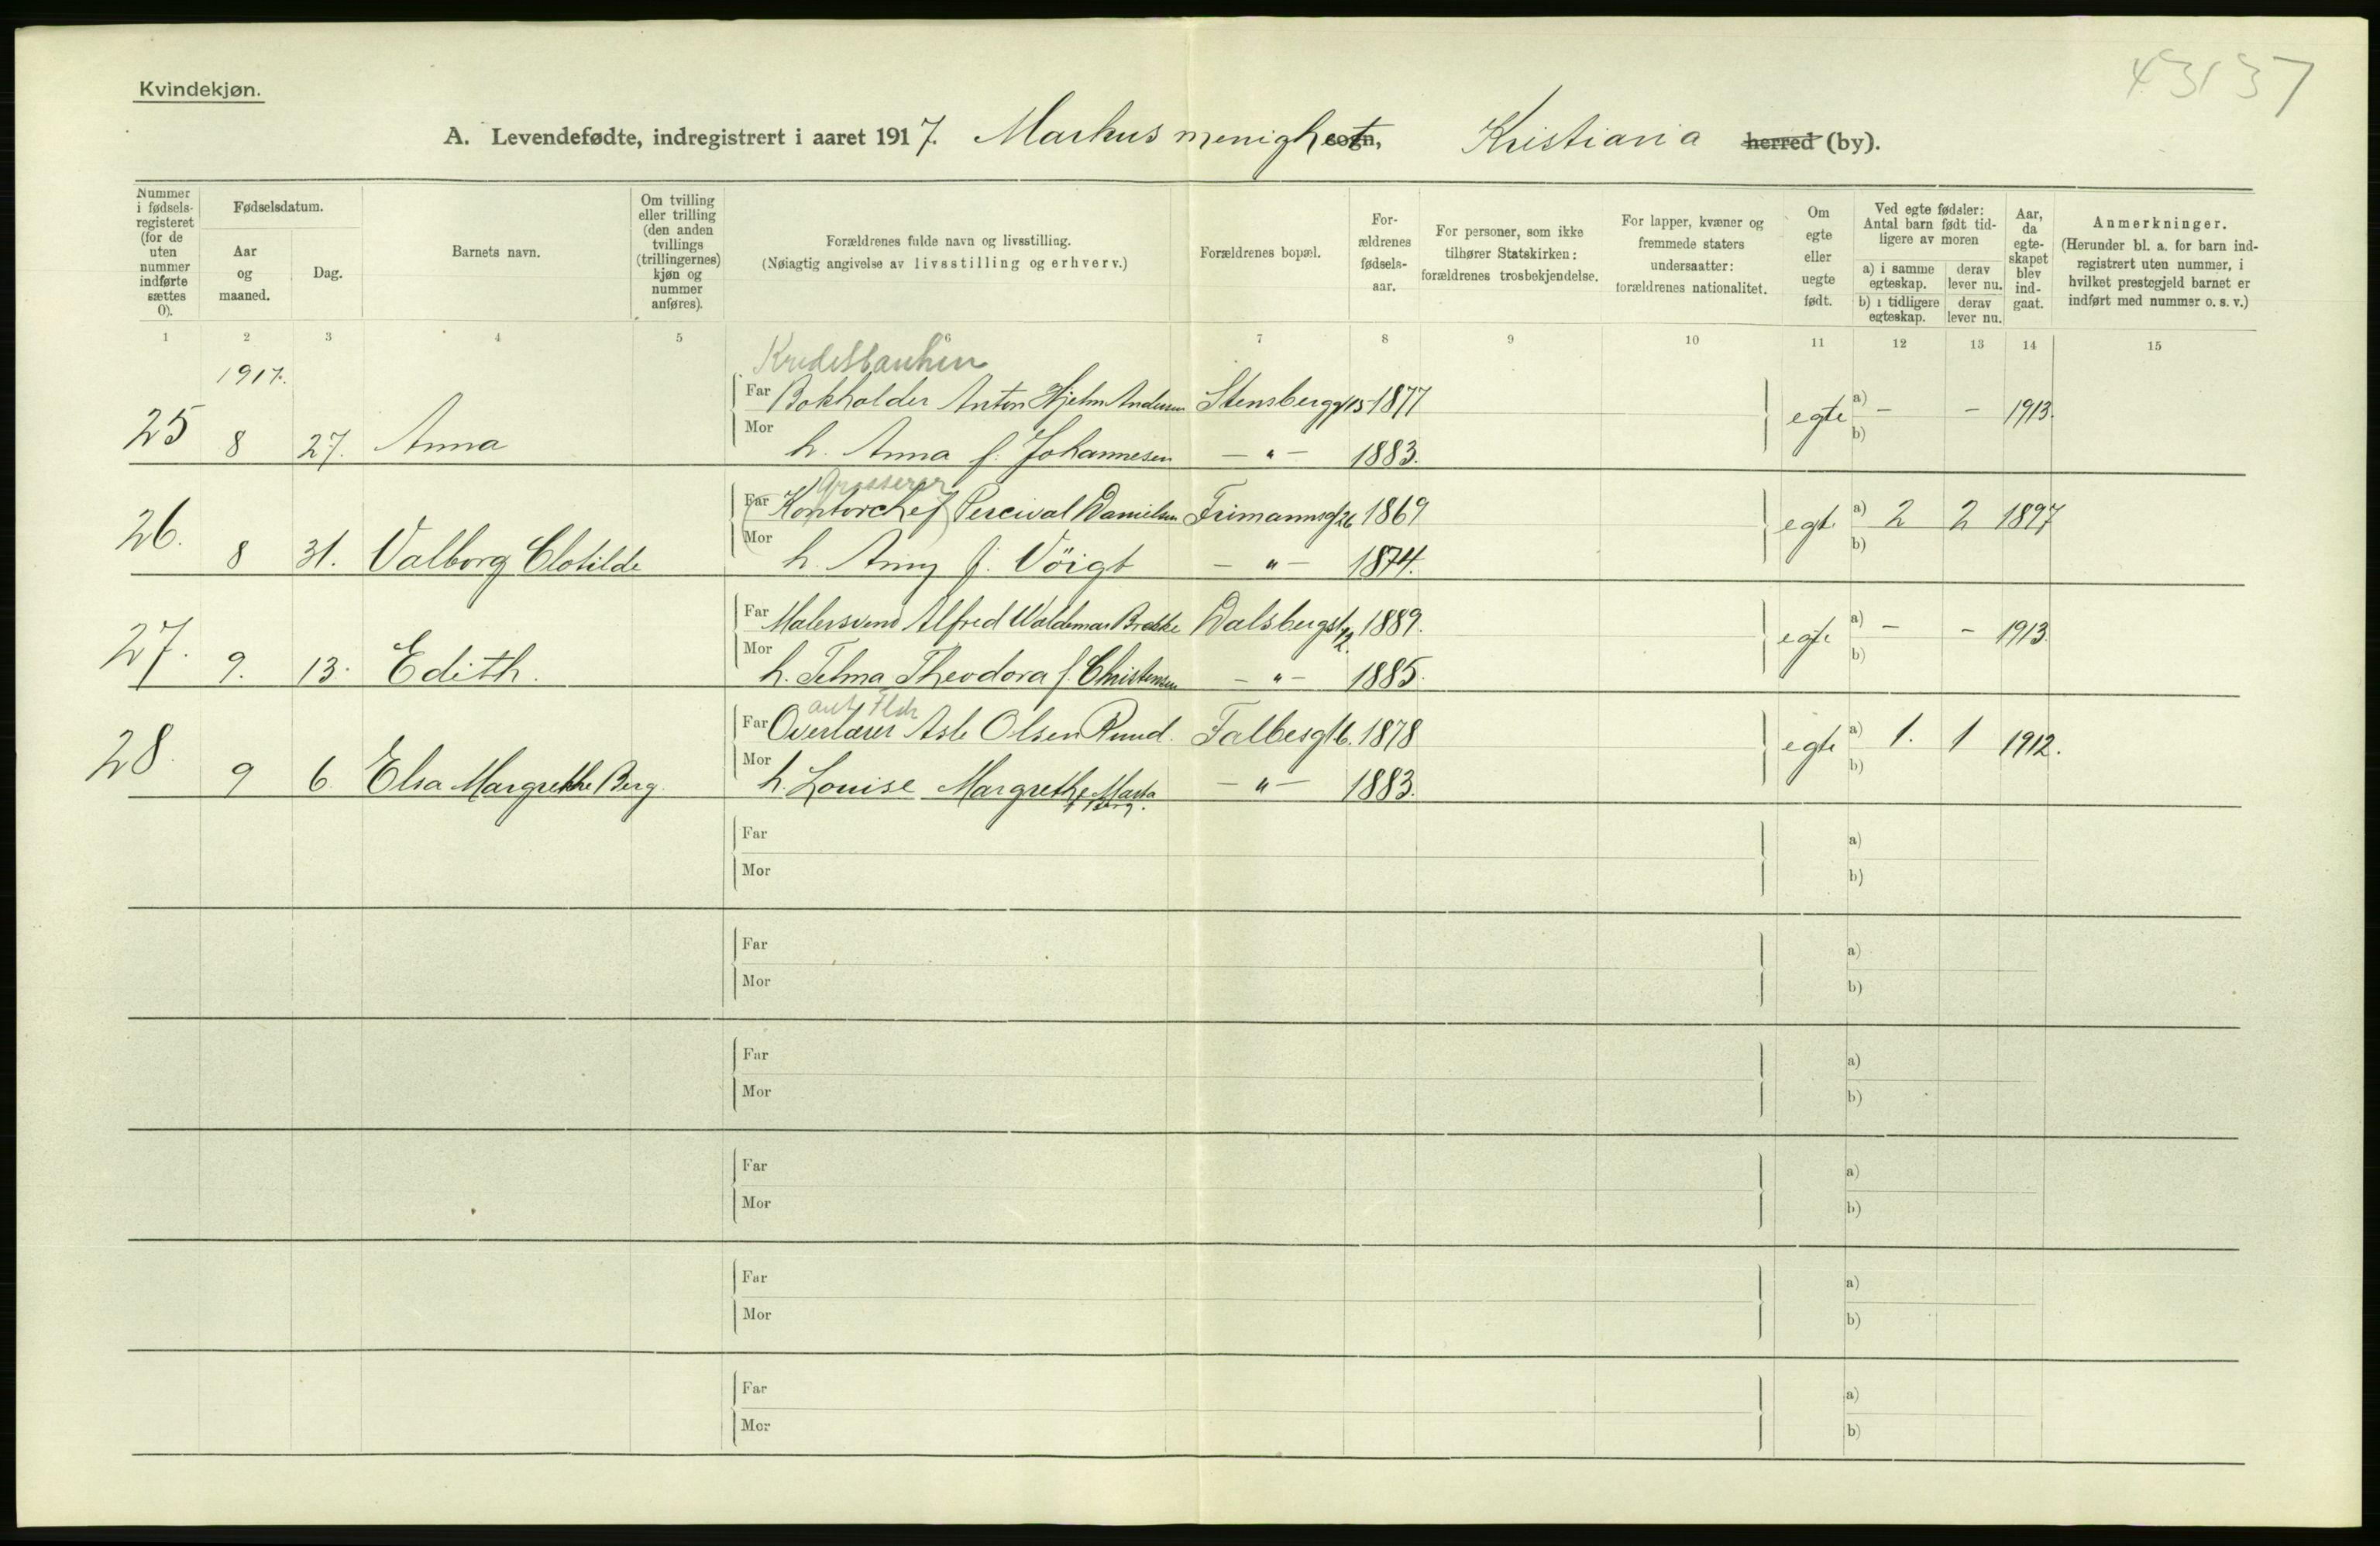 Kvindekjøn.
43137
A. Levendefødte, indregistrert i aaret 1917. Markus menighet sogn, Kristiania herred (by).
Nummer i fødsels-registeret (for de uten nummer indførte sættes 0).
Fødselsdatum.
Aar og maaned.
Dag.
Barnets navn.
Om tvilling eller trilling (den anden tvillings (trillingernes) kjøn og nummer anføres).
Forældrenes fulde navn og livsstilling.
(Nøiagtig angivelse av livsstilling og erhverv.)
Forældrenes bopæl.
For-ældrenes fødsels-aar.
For personer, som ikke tilhører Statskirken: forældrenes trosbekjendelse.
For lapper, kvæner og fremmede staters undersaatter: forældrenes nationalitet.
Om egte eller uegte født.
Ved egte fødsler: Antal barn født tid-ligere av moren
a) i samme egteskap.
derav lever nu.
b) i tidligere egteskap.
derav lever nu.
Aar, da egte-skapet blev ind-gaat.
Anmerkninger.
(Herunder bl. a. for barn ind-registrert uten nummer, i hvilket prestegjeld barnet er indført med nummer o. s. v.)
1 2 3 4 5 6 7 8 9 10 11 12 13 14 15
1917.
Kreditbanken
Far Bokholder Anton Hjelm Andersen Stensbergg 15 1877
25 8 27. Anna egte a) – – 1913. b)
Mor h. Anna f. Johannesen – " – 1883.
Grosserer
Far (Kontorchef) Percival Danielsen Frimannsgt 26 1869
26. 8 31. Valborg Clotilde egte a) 2 2 1897 b)
Mor h. Anny f. Vöigt – " – 1874.
Far Malersvend Alfred Waldemar Brekke Dalsbergst 12. 1889.
27. 9. 13. Edith. egte a) – – 1913. b)
Mor h. Telma Theodora f. Christensen – " – 1885.
Far Overlærer Asle Olsen Ruud. Falbesgt 6. 1878
28. 9 6. Elsa Margrethe Berg. egte a) 1. 1 1912. b)
Mor h. Louise Margrethe Marta f. Berg. – " – 1883.
Far a)
Mor b)
Far a)
Mor b)
Far a)
Mor b)
Far a)
Mor b)
Far a)
Mor b)
Far a)
Mor b)